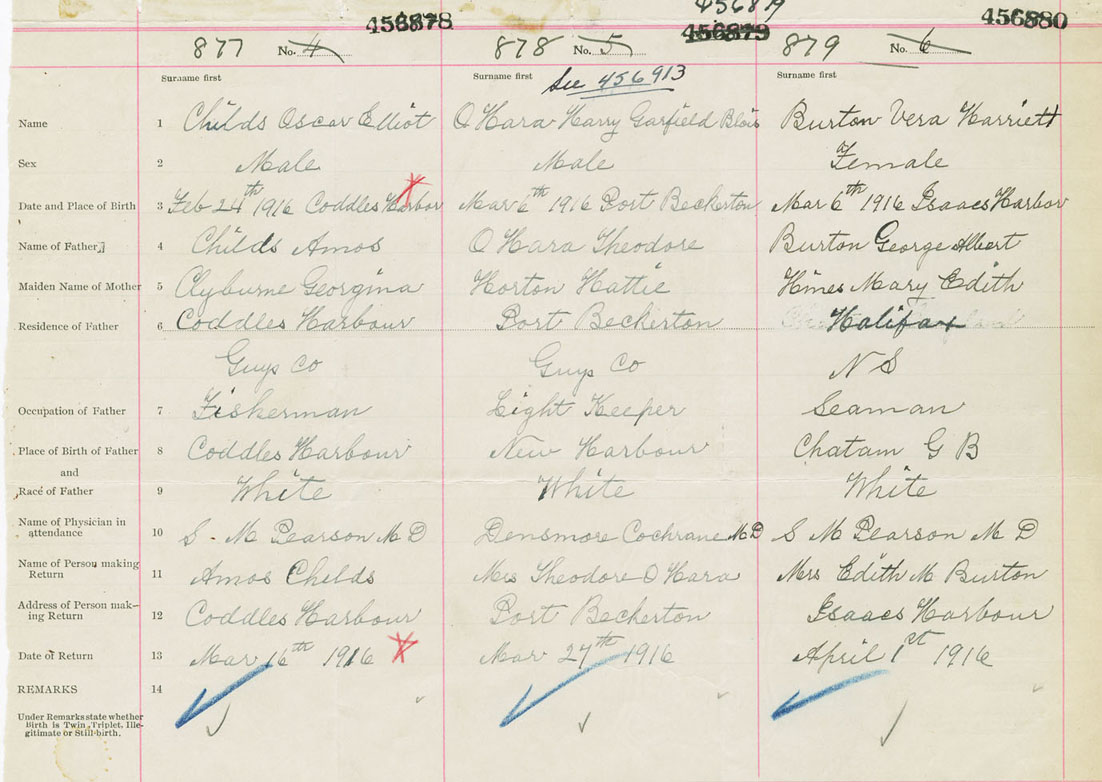 456879
456878 456879 456880
877 No. 4 878 No. 5 879 No. 6
Surname first Surname first Surname first
See 456913
Name 1 Childs Oscar Elliot O Hara Harry Garfield Blois Burton Vera Harriett
Sex 2 Male Male Female
Date and Place of Birth 3 Feb 24th 1916 Coddles Harbor Mar 6th 1916 Port Beckerton Mar 6th 1916 Isaacs Harbor
Name of Father 4 Childs Amos O Hara Theodore Burton George Albert
Maiden Name of Mother 5 Clyburne Georgina Horton Hattie Himes Mary Edith
Residence of Father 6 Coddles Harbour Port Beckerton Halifax
Guys Co Guys Co N S
Occupation of Father 7 Fisherman Light Keeper Seaman
Place of Birth of Father 8 Coddles Harbour New Harbour Chatam G B
and
Race of Father 9 White White White
Name of Physician in
attendance 10 S. M Pearson M D Densmore Cochrane M D S M Pearson M D
Name of Person making
Return 11 Amos Childs Mrs Theodore O Hara Mrs Edith M Burton
Address of Person mak-
ing Return 12 Coddles Harbour Port Beckerton Isaacs Harbour
Date of Return 13 Mar 16th 1916 Mar 27th 1916 April 1st 1916
REMARKS 14
Under Remarks state whether
Birth is Twin, Triplet, Ille-
gitimate or Still-birth.